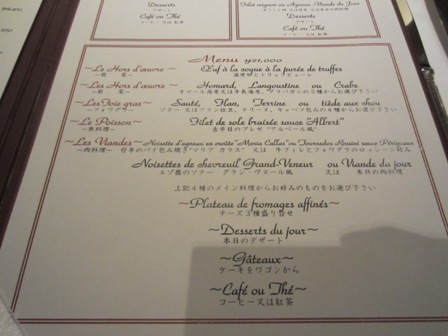 Desserts
デザート
Café ou Thé
コーヒー又は紅茶
Filet mignon ou Agneau Viande du Jour
Desserts
デザート
Café ou Thé
コーヒー又は紅茶
Menu ¥21,000
~Les Hors d'œuvre~ Œuf à la coque à la purée de truffes
~前 菜~ 温度卵とトリュフピューレ
~Les Hors d'œuvre~ Homard, Langoustine ou Crabe
~前 菜~ オマール海老又は手長海老又は
~Les Foie gras~ Sauté, Flan, Terrine ou tiède aux chou
~フォワグラ~
~Le Poisson~ Filet de sole braisée sauce "Albert"
~魚料理~ 舌平目のブレゼ "アルベール風"
~Les Viandes~ Noisette d'agneau en croûte "Maria Callas" ou Tournedos Rossini sauce Périgueux
~肉料理~ 仔羊のパイ包み焼き"マリア カラス" 又は 牛フィレとフォワグラのロッシーニ
Noisettes de chevreuil Grand-Veneur ou Viande du jour
エゾ鹿のソテー グラン・ヴヌール風 又は 本日の肉料理
上記4種のメイン料理からお好みのものをお選び下さい
~Plateau de fromages affinés~
チーズ3種盛り合せ
~Desserts du jour~
本日のデザート
~Gâteaux~
ケーキをワゴンから
~Café ou Thé~
コーヒー又は紅茶